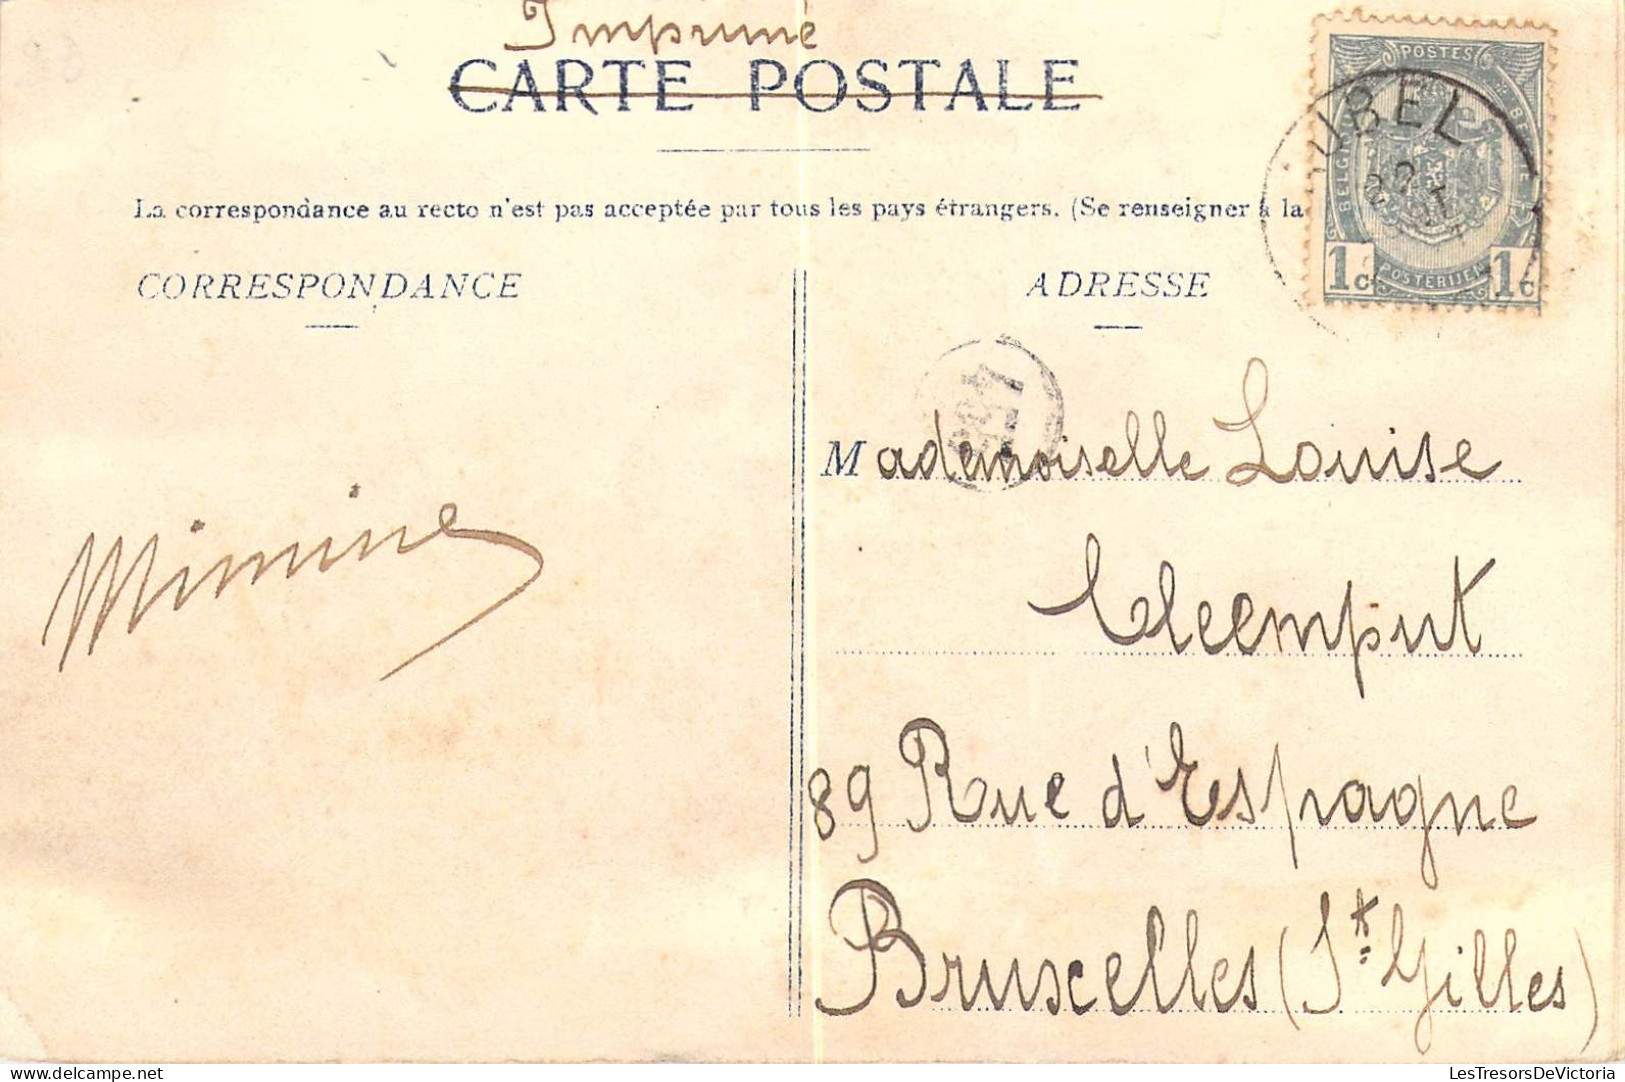 Imprimé
CARTE POSTALE
La correspondance au recto n'est pas acceptée par tous les pays étrangers. (Se renseigner à la
POSTES
BELGIQUE
BELGIE
POSTERIJEN
1c 1c
UBEL
22
CORRESPONDANCE
ADRESSE
Mademoiselle Louise
Cleemput
89 Rue d'Espagne
Bruxelles (St Gilles)
Mimine
LesTresorsDeVictoria
delcampe.net